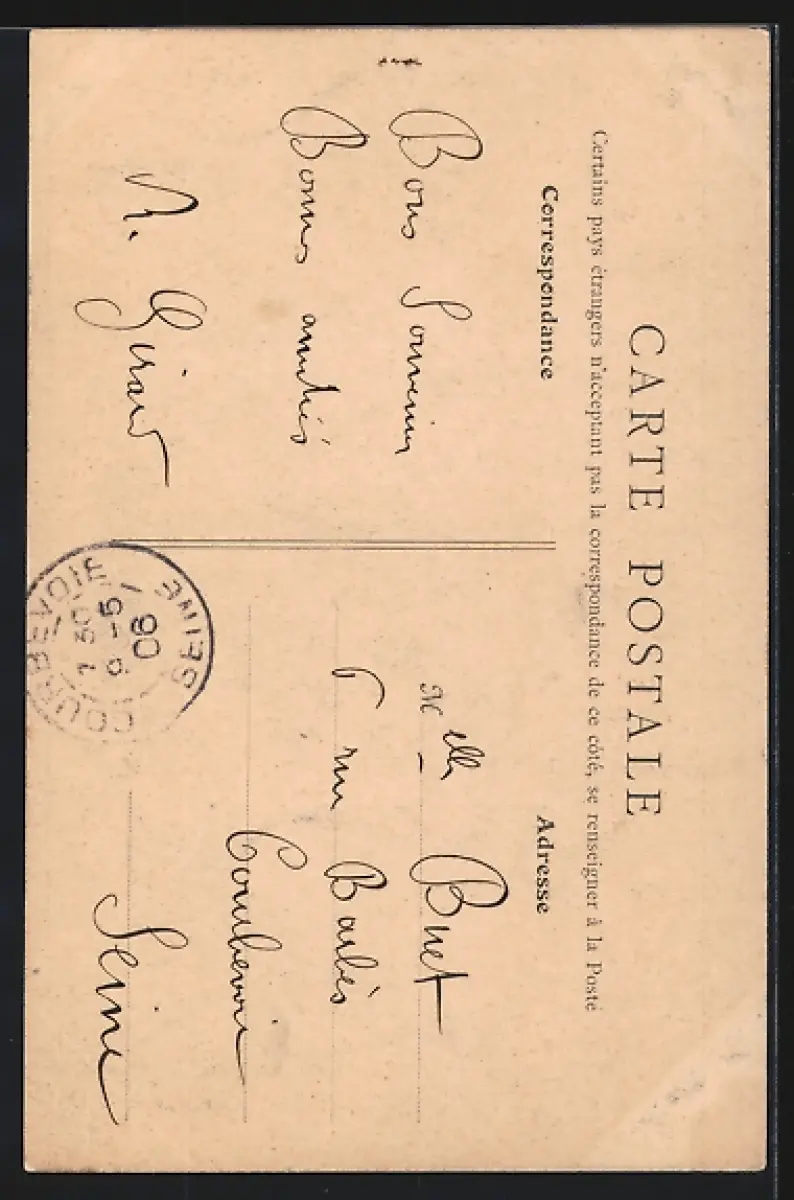 CARTE POSTALE
Certains pays étrangers n'acceptant pas la correspondance de ce côté, se renseigner à la Poste
Correspondance
Bons Souvenirs
Bonnes amitiés
A. Girard
Adresse
Melle Buet
rue Barbès
Courbevoie
Seine
COURBEVOIE
7 50
9 - 5
08
SEINE